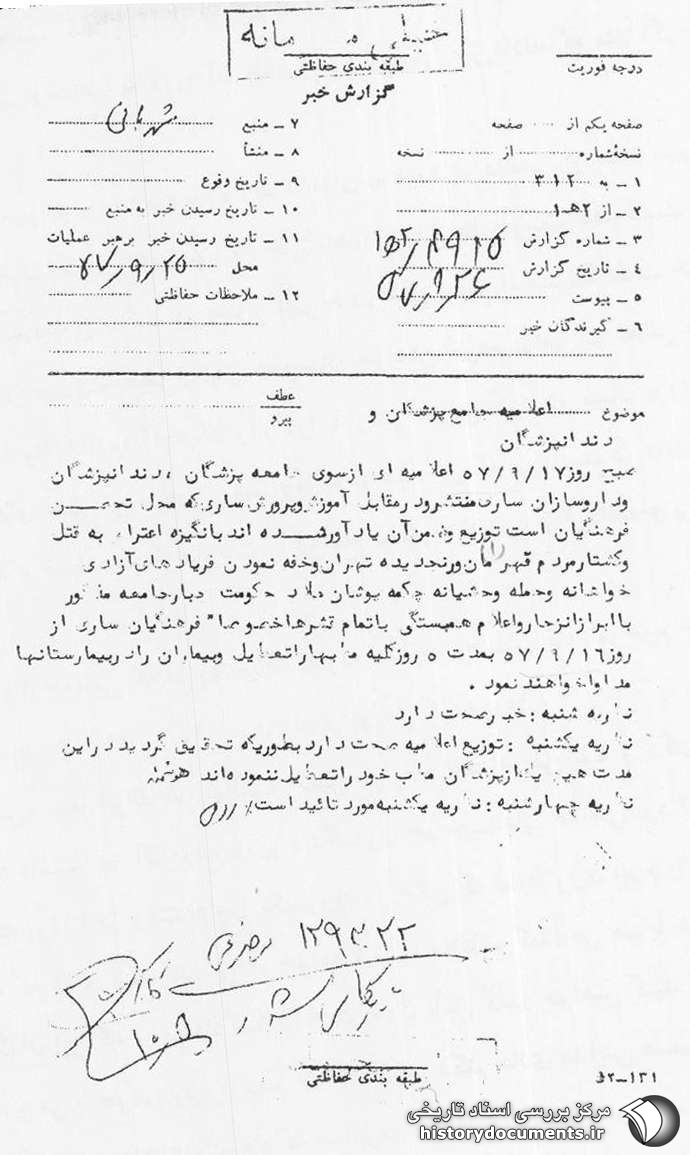 خیلی محرمانه
درجه فوریت
طبقه بندی حفاظتی
گزارش خبر
صفحه یکم از ...... صفحه
نسخهٔ شماره ........ از ........ نسخه
۱ – به ۳۱۲
۲ – از ۲هـ۱
۳ – شماره گزارش
۴ – تاریخ گزارش ۵۷/۹/۲۶
۵ – پیوست
۶ – گیرندگان خبر
۷ – منبع شهربانی
۸ – منشأ
۹ – تاریخ وقوع
۱۰ – تاریخ رسیدن خبر به منبع
۱۱ – تاریخ رسیدن خبر برهبر عملیات
محل ۵۷/۹/۲۵
۱۲ – ملاحظات حفاظتی
موضوع اعلامیه جامع پزشکان و
دندانپزشگان
عطف
پیرو
صبح روز ۵۷/۹/۱۷ اعلامیه ای ازسوی جامعه پزشگان ، دندانپزشگان
وداروسازان ساری منتشرودرمقابل آموزش وپرورش ساری که محل تحصن
فرهنگیان است توزیع وضمن آن یادآورشده اند بانگیزه اعتراض به قتل
وکشتارمردم قهرمان ورنجدیده تهران وخفه نمودن فریادهای آزادی
خواهانه وحمله وحشیانه چکمه پوشان جلاد حکومت جبارجامعه مذکور
باابرازانزجارواعلام همبستگی باتمام قشرها خصوصا" فرهنگیان ساری از
روز ۵۷/۹/۱۶ بمدت ۵ روزکلیه مطبهاراتعطیل وبیماران رادربیمارستانها
مداواخواهندنمود .
نظریه شنبه : خبرصحت دارد
نظریه یکشنبه : توزیع اعلامیه صحت دارد بطوریکه تحقیق گردید دراین
مدت هیچ یک ازپزشگان مطب خود راتعطیل ننموده اند
نظریه چهارشنبه : نظریه یکشنبه مورد تائید است.
۱۲۹۳۰۲۲
طبقه بندی حفاظتی
۱۳۱–۲ط
مرکز بررسی اسناد تاریخی
historydocuments.ir